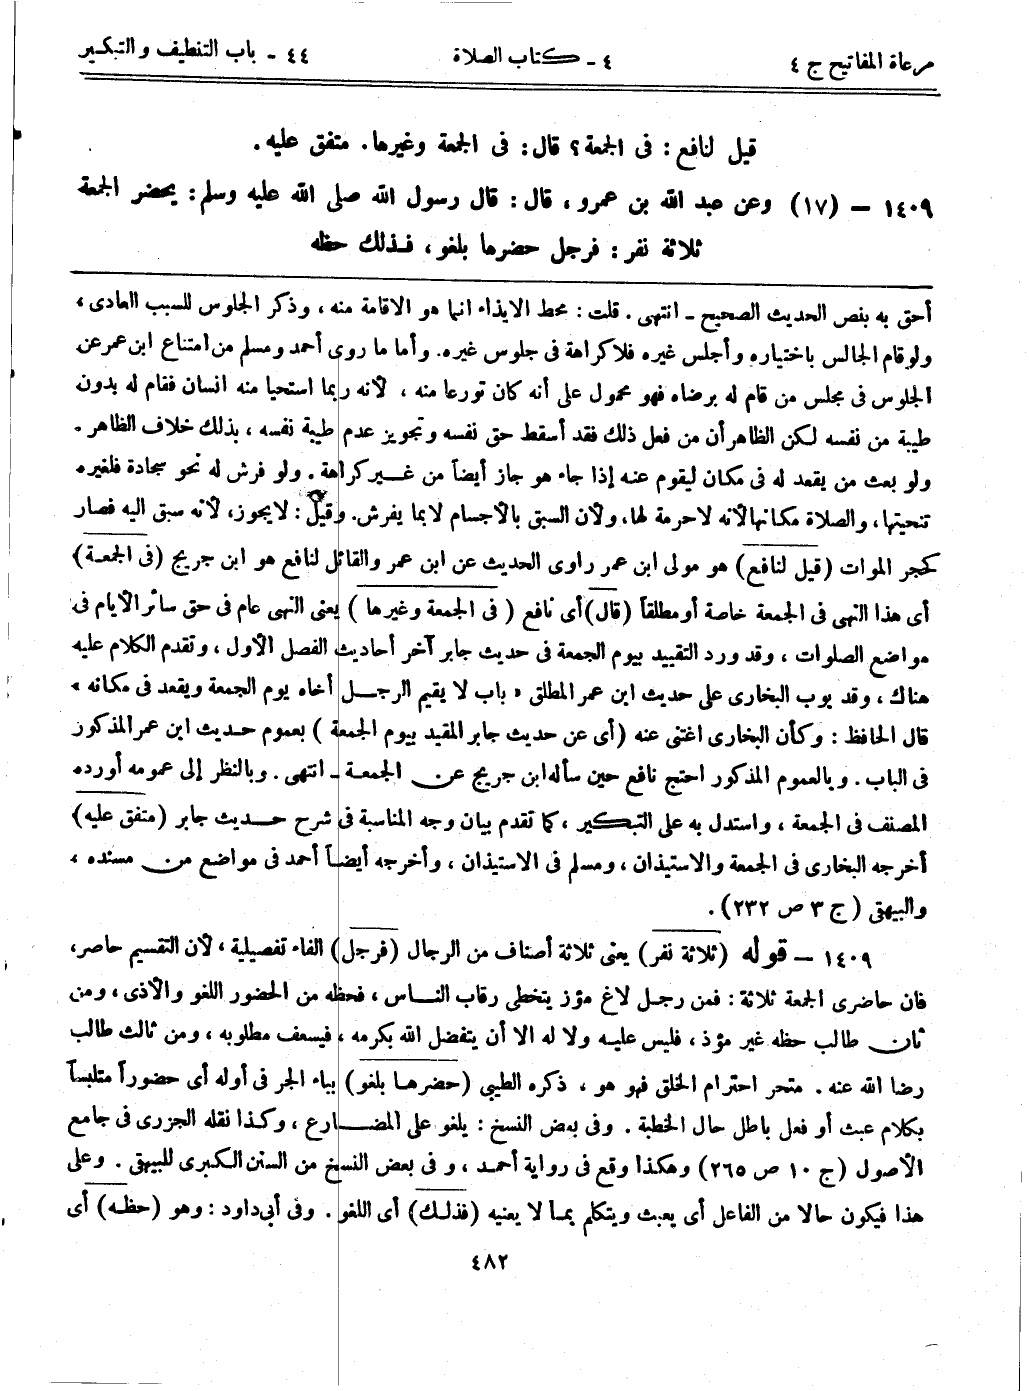 مرعاة المفاتيح ج ٤ ٤ - كتاب الصلاة ٤٤ - باب التنظيف والتبكير
قيل لنافع: فى الجمعة؟ قال: فى الجمعة وغيرها. متفق عليه.
١٤٠٩ - (١٧) وعن عبد الله بن عمرو، قال: قال رسول الله صلى الله عليه وسلم: يحضر الجمعة
ثلاثة نفر: فرجل حضرها بلغو، فذلك حظه
أحق به بنص الحديث الصحيح - انتهى. قلت: محط الايذاء انما هو الاقامة منه، وذكر الجلوس للسبب العادى،
ولو قام الجالس باختياره وأجلس غيره فلا كراهة فى جلوس غيره. وأما ما روى أحمد ومسلم من امتناع ابن عمر عن
الجلوس فى مجلس من قام له برضاه فهو محمول على أنه كان تورعا منه، لأنه ربما استحيا منه انسان فقام له بدون
طيبة من نفسه لكن الظاهر أن من فعل ذلك فقد أسقط حق نفسه وتجويز عدم طيبة نفسه، بذلك خلاف الظاهر.
ولو بعث من يقعد له فى مكان ليقوم عنه إذا جاء هو جاز أيضاً من غير كراهة. ولو فرش له نحو سجادة فلغيره
تنحيتها، والصلاة مكانها لأنه لا حرمة لها، ولأن السبق بالأجسام لا بما يفرش. وقيل: لا يجوز، لأنه سبق اليه فصار
كحجر الموات (قيل لنافع) هو مولى ابن عمر راوى الحديث عن ابن عمر والقائل لنافع هو ابن جريج (فى الجمعة)
أى هذا النهى فى الجمعة خاصة أو مطلقاً (قال) أى نافع (فى الجمعة وغيرها) يعنى النهى عام فى حق سائر الأيام فى
مواضع الصلوات، وقد ورد التقييد بيوم الجمعة فى حديث جابر آخر أحاديث الفصل الأول، وتقدم الكلام عليه
هناك، وقد بوب البخارى على حديث ابن عمر المطلق « باب لا يقيم الرجل أخاه يوم الجمعة ويقعد فى مكانه »
قال الحافظ: وكأن البخارى اغتنى عنه (أى عن حديث جابر المقيد بيوم الجمعة) بعموم حديث ابن عمر المذكور
فى الباب. وبالعموم المذكور احتج نافع حين سأله ابن جريج عن الجمعة - انتهى. وبالنظر إلى عمومه أورده
المصنف فى الجمعة، واستدل به على التبكير، كما تقدم بيان وجه المناسبة فى شرح حديث جابر (متفق عليه)
أخرجه البخارى فى الجمعة والاستيذان، ومسلم فى الاستيذان، وأخرجه أيضاً أحمد فى مواضع من مسنده،
والبيهقى (ج ٣ ص ٢٣٢).
١٤٠٩ - قوله (ثلاثة نفر) يعنى ثلاثة أصناف من الرجال (فرجل) الفاء تفصيلية، لأن التقسيم حاصر،
فان حاضرى الجمعة ثلاثة: فمن رجل لاغ مؤذ يتخطى رقاب الناس، فحظه من الحضور اللغو والأذى، ومن
ثان طالب حظه غير مؤذ، فليس عليه ولا له الا أن يتفضل الله بكرمه، فيسعف مطلوبه، ومن ثالث طالب
رضا الله عنه. متحر احترام الخلق فهو هو، ذكره الطيبى (حضرها بلغو) بباء الجر فى أوله أى حضوراً متلبساً
بكلام عبث أو فعل باطل حال الخطبة. وفى بعض النسخ: يلغو على المضارع، وكذا نقله الجزرى فى جامع
الأصول (ج ١٠ ص ٢٦٥) وهكذا وقع فى رواية أحمد، وفى بعض النسخ من السنن الكبرى للبيهقى. وعلى
هذا فيكون حالا من الفاعل أى يعبث ويتكلم بما لا يعنيه (فذلك) أى اللغو. وفى أبى داود: وهو (حظه) أى
٤٨٢